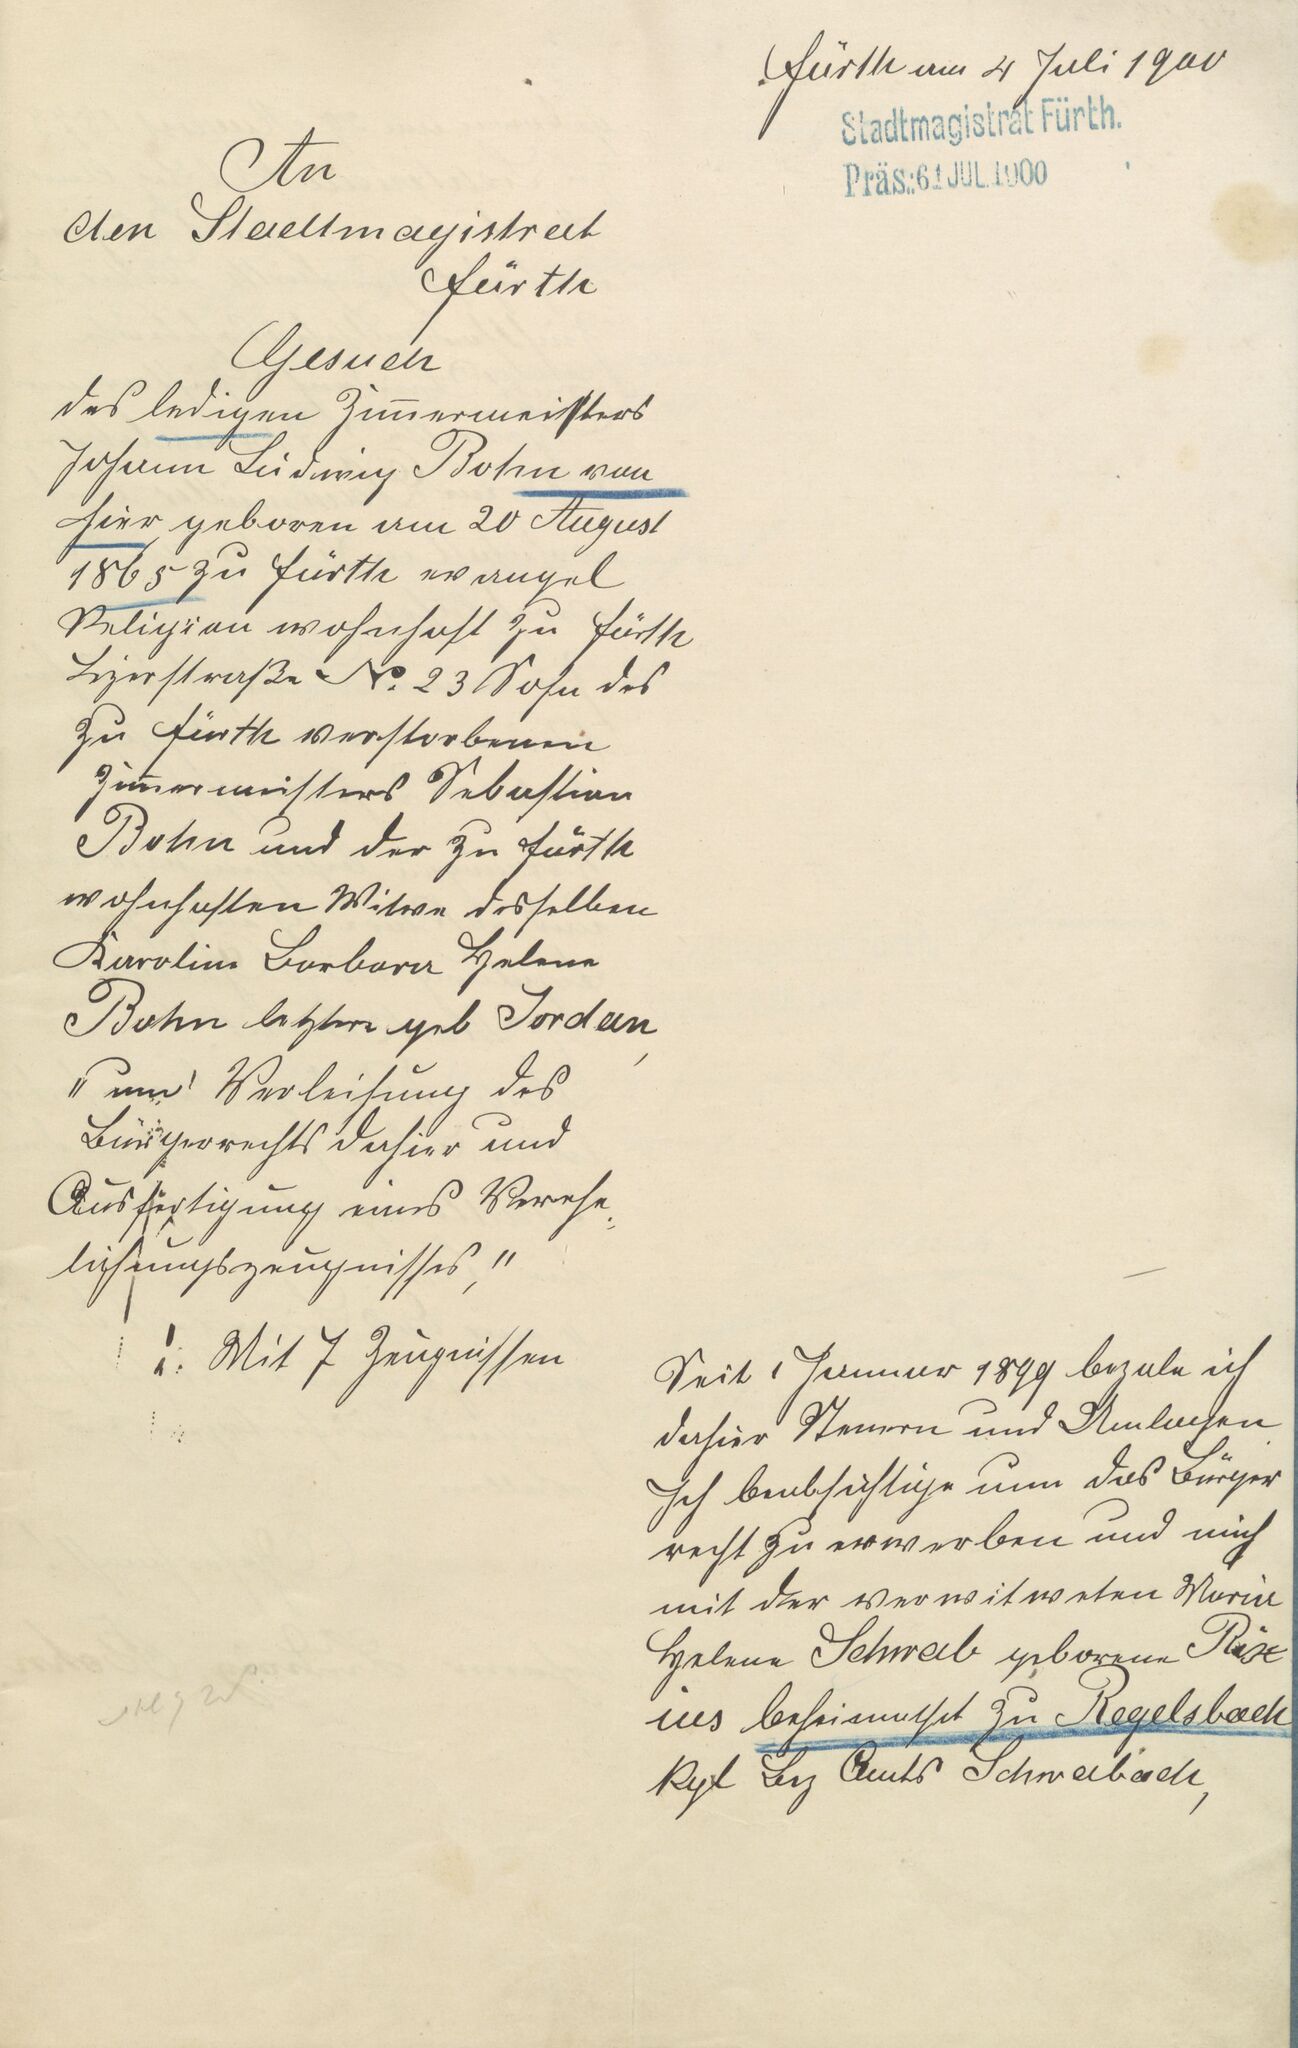 Fürth am 4 Juli 1900
Stadtmagistrat Fürth.
Präs.: 6 JUL. 1900
An
den Stadtmagistrat
Fürth
Gesuch
des ledigen Zimmermeisters
Johann Ludwig Bohn von
hier geboren am 20 August
1865 zu Fürth evangel
Religion wohnhaft zu Fürth
N. 23 Sohn des
zu Fürth verstorbenen
Zimmermeisters Sebastian
Bohn und der zu Fürth
wohnhaften Witwe desselben
Karolina Barbara Helena
Bohn letztere geb Jordan,
"um Verleihung des
Bürgerrechts dahier und
Ausfertigung eines Verehe-
lichungszeugnisses,"
Mit 7 Zeugnissen
Seit 1 Januar 1899 bezale ich
dahier Steuern und Umlagen
Ich beabsichtige nun das Bürger
recht zu erwerben und mich
mit der verwitweten Maria
Helena Schwab geborene Rix
ius beheimathet zu Regelsbach
kgl Bez Amts Schwabach,